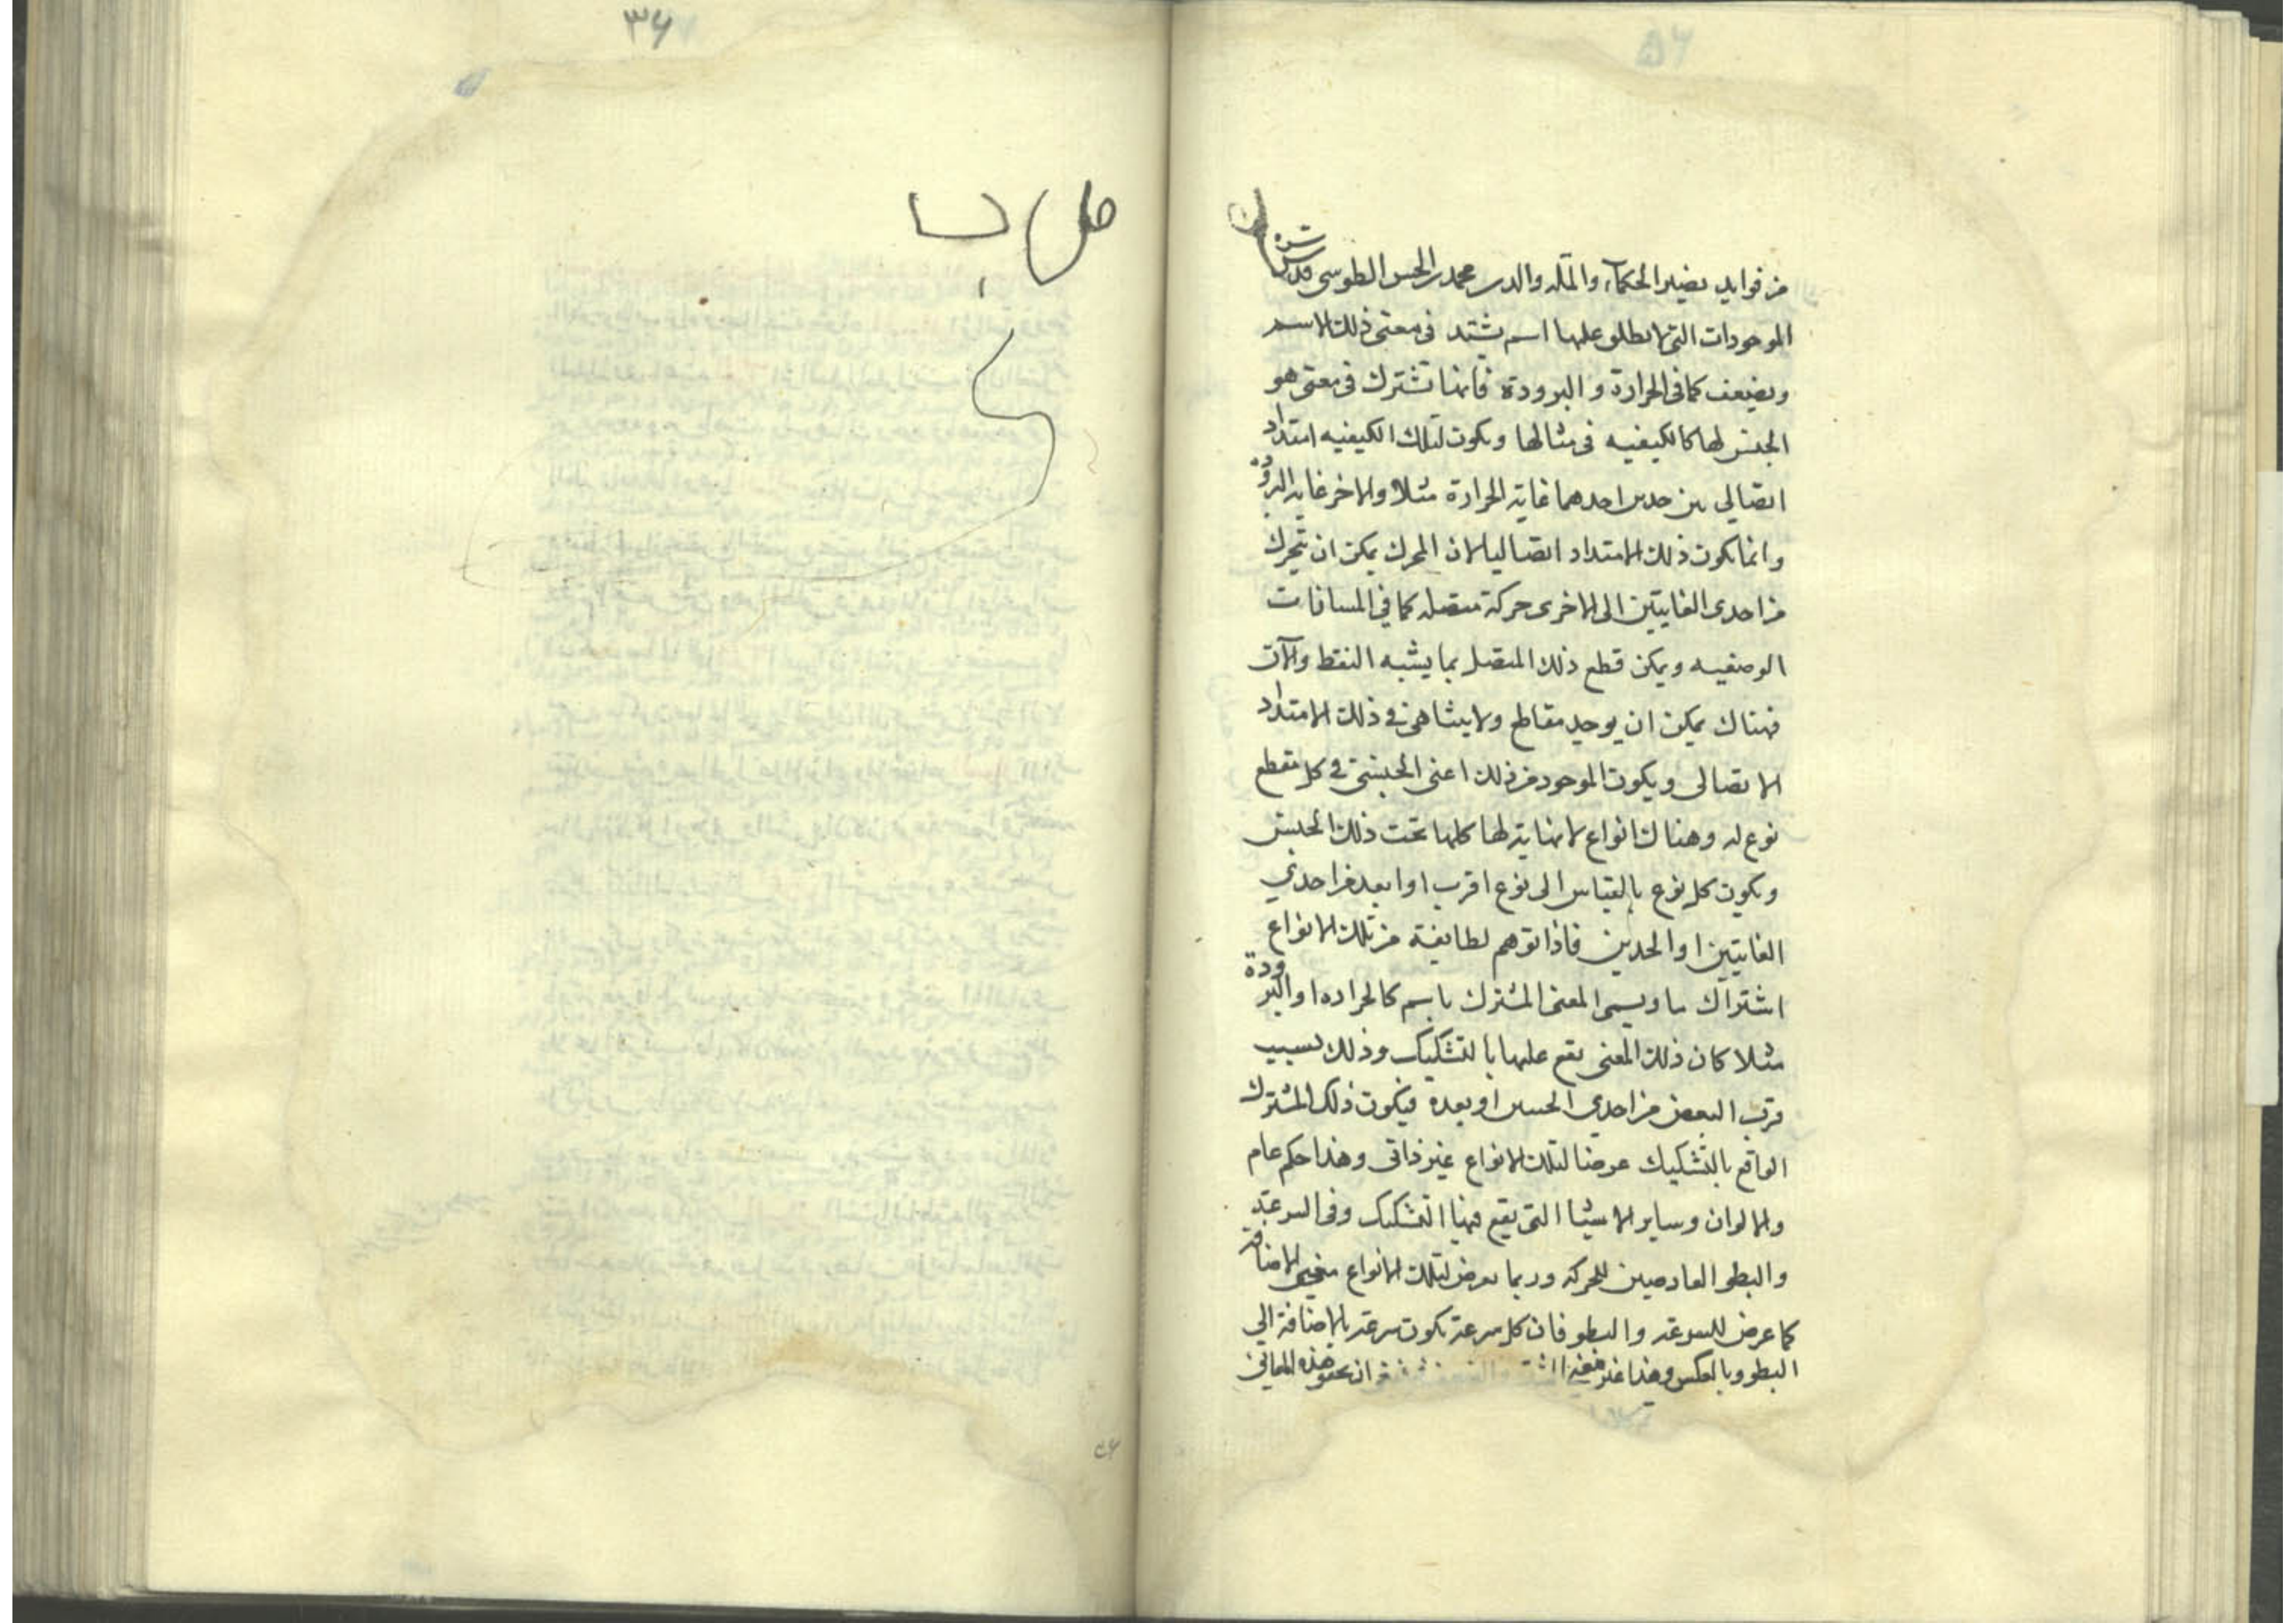 من فوايد نصير الحكماء والملة والدين محمد بن الحسن الطوسي قدس سره
الموجودات التي يطلق عليها اسم يشتد في معنى ذلك الاسم
ويضعف كما في الحرارة والبرودة فانها تشترك في معنى هو
الجنس لها كالكيفيه في مثالها ويكون لتلك الكيفيه امتداد
اتصالي بين حدين احدهما غاية الحرارة مثلا والاخر غاية البرودة
وانما يكون ذلك الامتداد اتصاليا لان المحرك يمكن ان يتحرك
من احدى الغايتين الى الاخرى حركة متصله كما في المسافات
الوضعيه ويمكن قطع ذلك المتصل بما يشبه النقط والآن
فهناك يمكن ان يوجد مقاطع ولا يتناهى في ذلك الامتداد
الاتصالى ويكون الموجود من ذلك اعنى الجنسى في كل مقطع
نوع له وهناك انواع لا نهاية لها كلها تحت ذلك الجنس
ويكون كل نوع بالقياس الى نوع اقرب او ابعد من احدي
الغايتين او الحدين فاذا توهم لطايفة من تلك الانواع
اشتراك ما ويسمى المعنى المشترك باسم كالحراره او البرودة
مثلا كان ذلك المعنى يقع عليها بالتشكيك وذلك بسبب
قرب البعض من احدي الحسين او بعده فيكون ذلك المشترك
الواقع بالتشكيك عرضا لتلك الانواع غير ذاتى وهذا حكم عام
والالوان وساير الاشيا التى يقع فيها التشكيك وفى السرعة
والبطو العارضين للحركه وربما يعرض لتلك الانواع معنى الاضافة
كما عرض للسرعه والبطو فان كل سرعة يكون سرعة بالاضافة الى
البطو وبالعكس وهذا غير معنى ان هذه المعاني
٣۶
۵۶